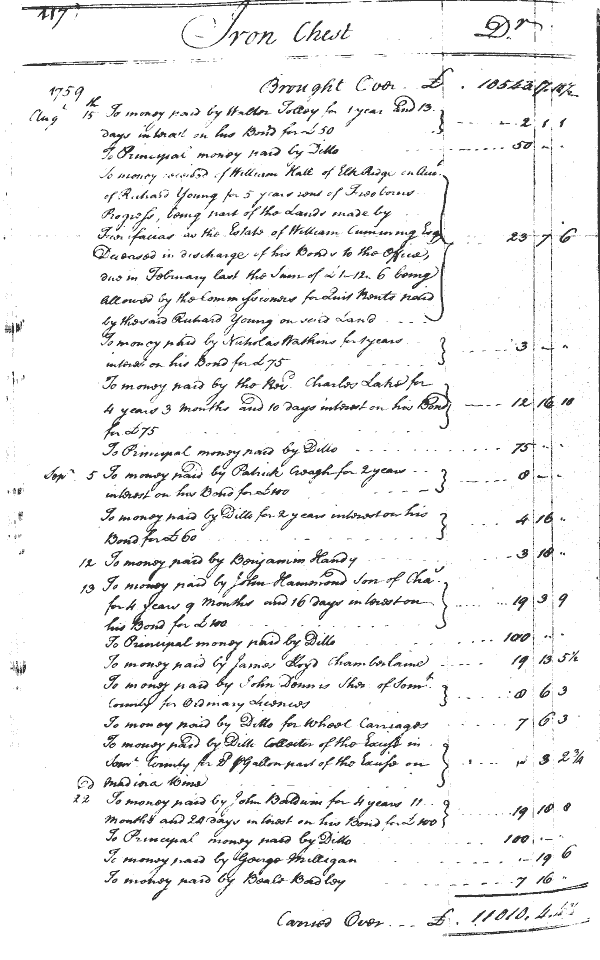 117
Iron Chest Dr
Brought Over £ 10543. 7.
1759
Augt 15th To money paid by Walter Tolley for 1 year and 13
days interest on his Bond for £50 2 1 1
To Principal money paid by Ditto 50 " "
To money received of William Hall of Elk Ridge on Acct
of Richard Young for 5 years rent of Freeborns
Progress, being part of the Lands made by
Fierifacias as the Estate of William Cumming Esqr
Deceased in discharge of his Bonds to the Office,
due in February last the Sum of £1.12.6 being
allowed by the Commissioners for Quit Rents paid
by the said Richard Young on said Land 23 7 6
To money paid by Nicholas Watkins for 1 years
interest on his Bond for £75 3 " "
To money paid by the Revd Charles Lake for
4 years 3 Months and 10 days interest on his Bond 12 16 10
for £75
To Principal money paid by Ditto 75 " "
Sepr 5 To money paid by Patrick Creagh for 2 years
interest on his Bond for £100 8 " "
To money paid by Ditto for 2 years interest on his
Bond for £60 4 16 "
12 To money paid by Benjamin Handy 3 18 "
13 To money paid by John Hammond Son of Chas
for 4 years 9 Months and 16 days interest on
his Bond for £100 19 3 9
To Principal money paid by Ditto 100 " "
To money paid by James Lloyd Chamberlaine 19 13 5½
To money paid by John Dennis Sher. of Somt
County for Ordinary Licences 8 6 3
To money paid by Ditto for Wheel Carriages 7 6 3
To money paid by Ditto Collector of the Excise in
Somt County for Gallon part of the Excise on
Madira Wine " 3 2¾
22 To money paid by John Baldwin for 4 years 11
Months and 24 days interest on his Bond for £100 19 18 8
To Principal money paid by Ditto 100 " "
To money paid by George Milligan " 19 6
To money paid by Beale Bordley 7 16 "
Carried Over £ 11010. 4.